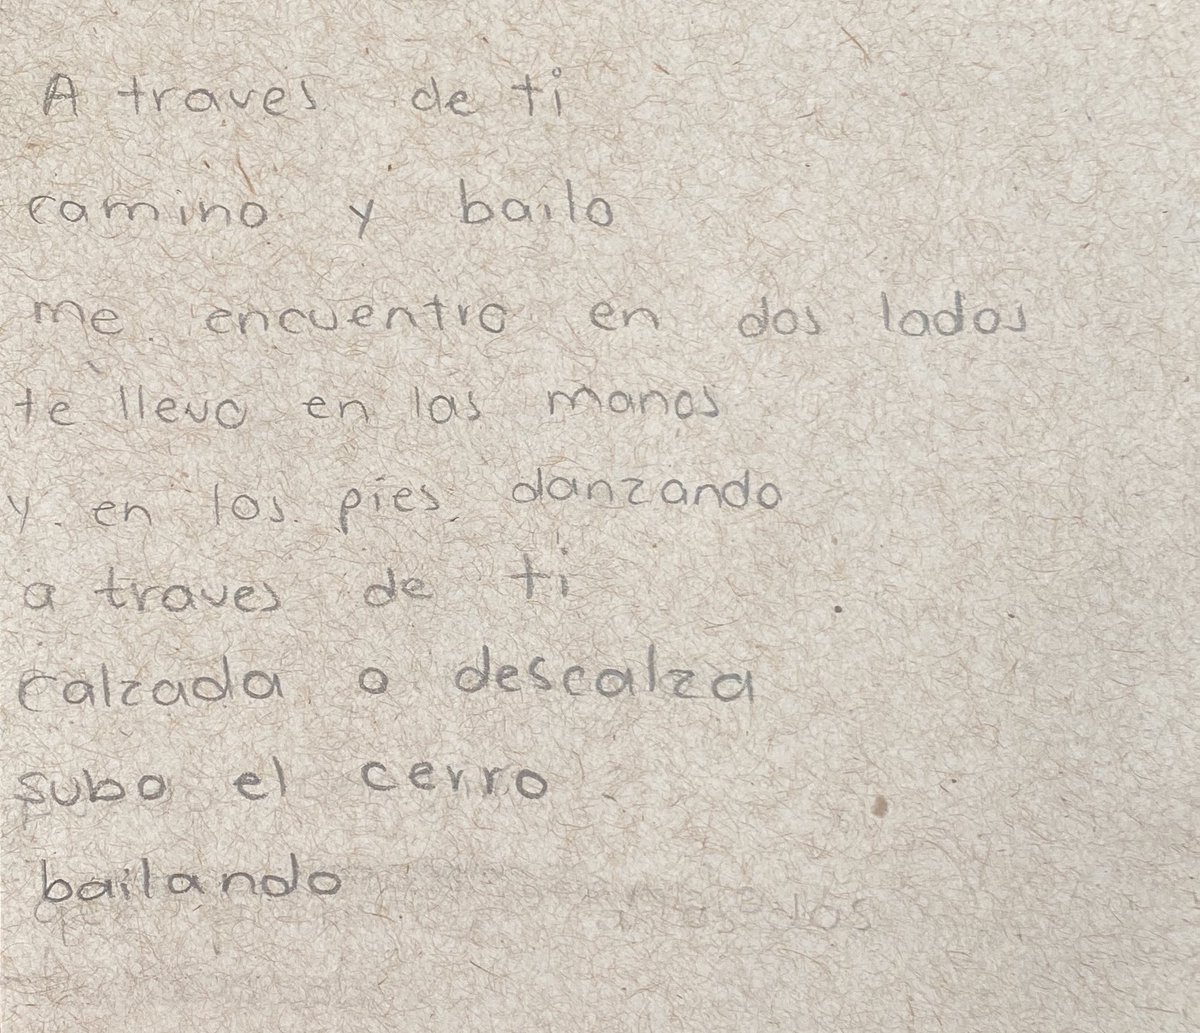 A traves de ti
camino y bailo
me encuentro en dos lados
te llevo en las manos
y en los pies danzando
a traves de ti
calzada o descalza
subo el cerro
bailando